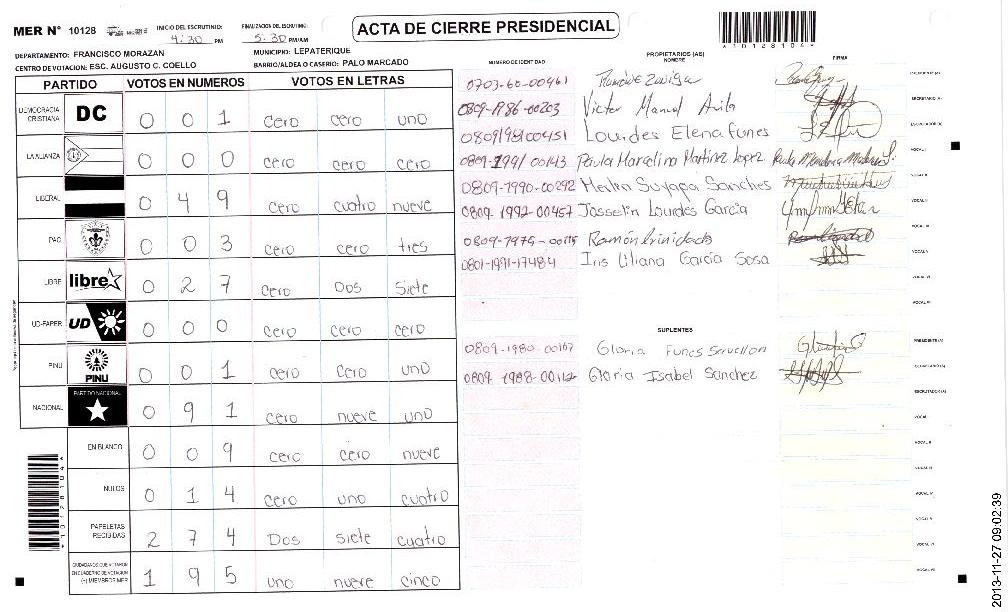 MER N° 10128
INICIO DEL ESCRUTINIO: 4:30 PM
FINALIZACION DEL ESCRUTINIO: 5:30 PM/AM
ACTA DE CIERRE PRESIDENCIAL
DEPARTAMENTO: FRANCISCO MORAZAN
MUNICIPIO: LEPATERIQUE
CENTRO DE VOTACION: ESC. AUGUSTO C. COELLO
BARRIO/ALDEA O CASERIO: PALO MARCADO
PARTIDO VOTOS EN NUMEROS VOTOS EN LETRAS
DEMOCRACIA CRISTIANA DC 0 0 1 cero cero uno
LA ALIANZA 0 0 0 cero cero cero
LIBERAL 0 4 9 cero cuatro nueve
PAC 0 0 3 cero cero tres
LIBRE libre 0 2 7 cero Dos Siete
UD-FAPER UD 0 0 0 cero cero cero
PINU PINU 0 0 1 cero Cero uno
NACIONAL PARTIDO NACIONAL 0 9 1 cero nueve uno
EN BLANCO 0 0 9 cero cero nueve
NULOS 0 1 4 cero uno cuatro
PAPELETAS RECIBIDAS 2 7 4 Dos siete cuatro
CIUDADANOS QUE VOTARON EN CUADERNO DE VOTACION (+) MIEMBROS MER 1 9 5 uno nueve cinco
NUMERO DE IDENTIDAD PROPIETARIOS (AS) NOMBRE FIRMA
0703-60-00961 PRESIDENTE (A)
0809-1986-00203 Victor Manuel Avila SECRETARIO (A)
0809/198100451 Lourdes Elena Funes ESCRUTADOR (A)
0809-1991 00143 Paula Marcelina Martinez Lopez VOCAL I
0809-1990-00292 Suyapa Sanches VOCAL II
0809-1992-00457 Josselin Lourdes Garcia VOCAL III
0809-1975-00115 Ramón trinidad VOCAL IV
0801-1991-17484 Iris Liliana García Sosa VOCAL V
VOCAL VI
VOCAL VII
SUPLENTES
0809-1980-00167 Gloria Funes PRESIDENTE (A)
0809-1988-00112 Gloria Isabel Sanchez SECRETARIO (A)
ESCRUTADOR (A)
VOCAL I
VOCAL II
VOCAL III
VOCAL IV
VOCAL V
VOCAL VI
VOCAL VII
2013-11-27 09:02:39